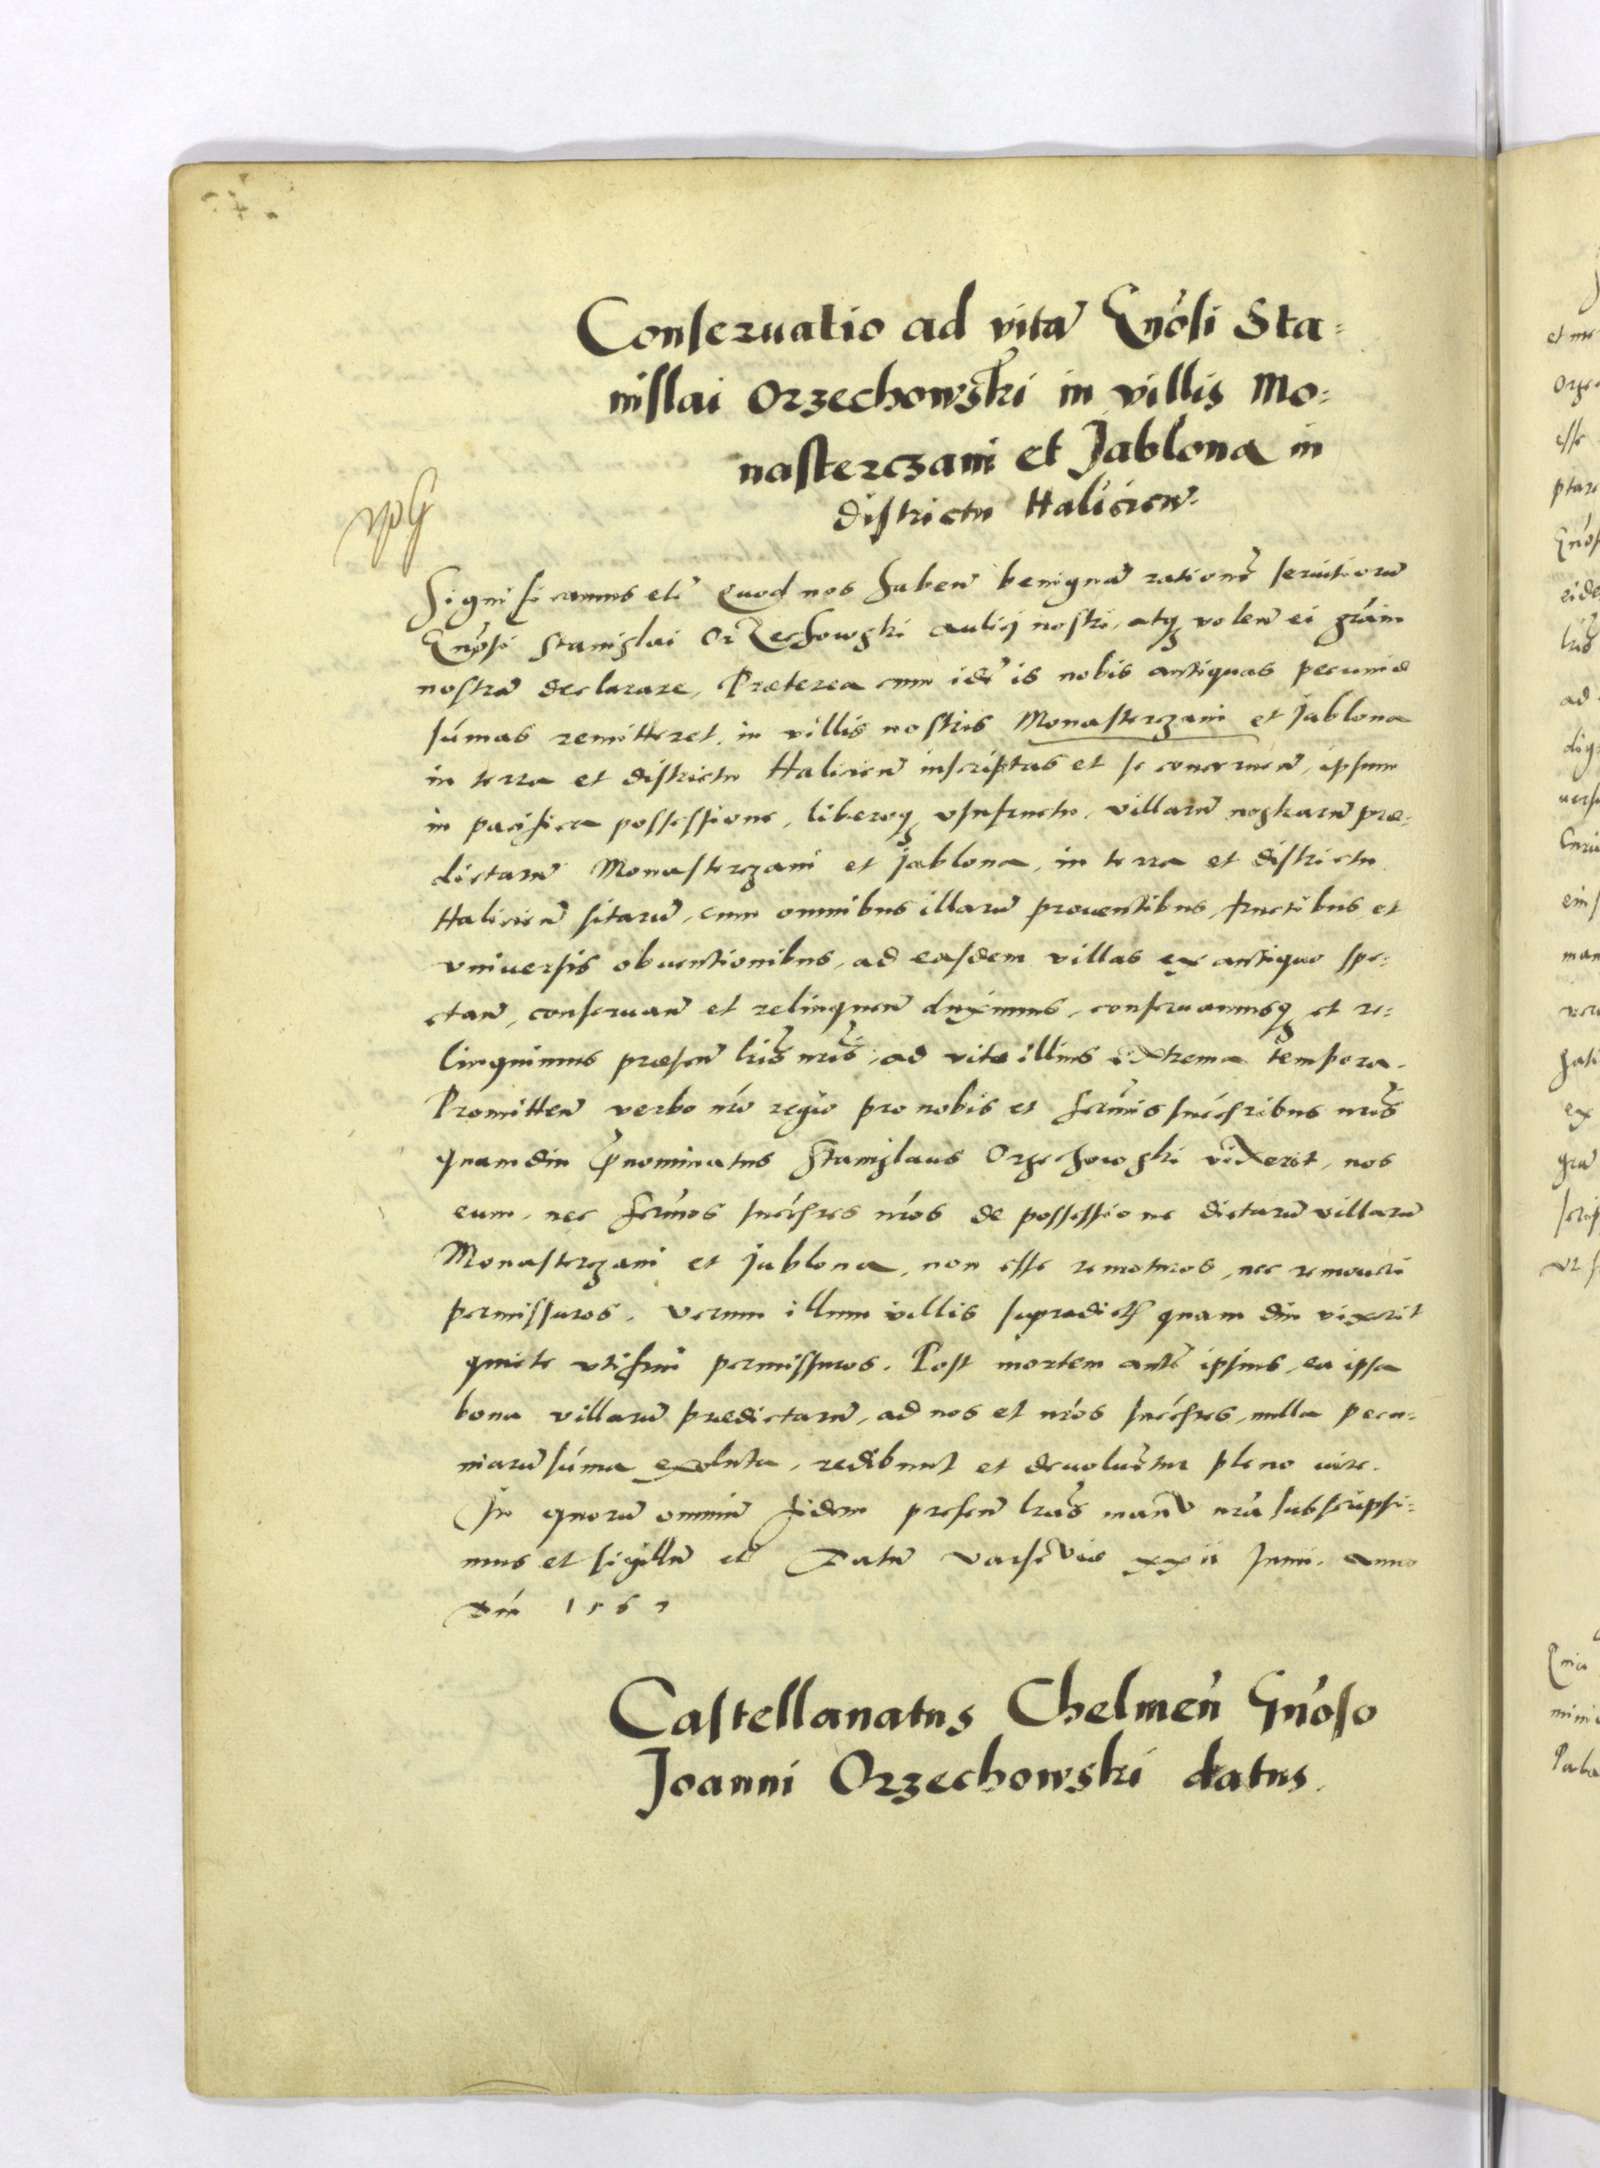 Conseruatio ad vitā Gnōsi Sta=
nislai Orzechowski in villis Mo=
nasterczani et Jablona in
districtu Halicieñ.
Significamus etc̃ Quod nos habeñ benignā rationē seruitiorū
Gnōsi Stanislai Orzechowski aulici nostri, atq voleñ ei grām
nostrā declarare, Præterea cum idē is nobis antiquas pecuniæ
sūmas remitteret, in villis nostris Monasterzani et Jablona
in terra et districtu Halicieñ inscriptas et se concerneñ, ipsum
in pacifica possessione, liberoq vsufructu, villarū nostrarū præ=
dictarū Monasterczani et Jablona, in terra et districtu
Halicieñ sitarū, cum omnibus illarū prouentibus, fructibus et
vniuersis obuentionibus, ad easdem villas ex antiquo spe=
ctañ, conseruañ et relinqueñ duximus, conseruamusq et re=
linquimus præseñ lrīs nrīs, ad vitæ illius extrema tempora.
Promitteñ verbo nrō regio pro nobis et sermīs succēsribus nrīs
quamdiu p̄nominatus Stanislaus Orzechowski vixerit, nos
eum, nec sermōs succēsres nrōs de possessione dictarū villarū
Monasterzani et Jablona, non esse remoturos, nec remoueri
permissuros. Verum illum villis supradict quam diu vixerit
quiete vtifrui permissuros. Post mortem autē ipsius, ea ipsa
bona villarū prædictarū, ad nos et nrōs succēsres, nulla pecu=
niarū sūma exoluta, redibunt et deuoluētur pleno iure.
In quorū omniū fidem preseñ lrās manu nrā subscripsi=
mus et sigillū etc̃ Datū Varsẽviæ xxii Junii. anno
Dñi
Castellanatus Chelmeñ Gnōso
Joanni Orzechowski datus.